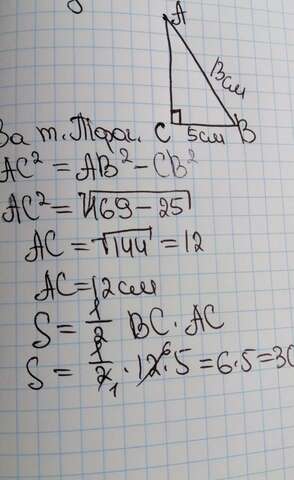 A
13см
C 5см B
За т. Піфаг.
AC² = AB² - CB²
AC² = √169 - 25
AC = √144 = 12
AC = 12см
S = 1/2 BC · AC
S = 1/2 · 12 · 5 = 6 · 5 = 30